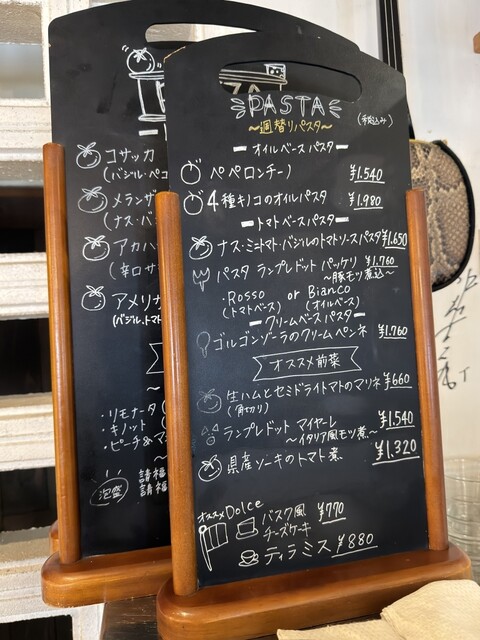 PASTA
~週替りパスタ~
(税込み)
オイルベースパスタ
ペペロンチー) ¥1.540
4種キノコのオイルパスタ ¥1.980
トマトベースパスタ
ナス・ミニトマト・バジルのトマトソースパスタ ¥1.650
パスタ ランプレドット パッケリ ¥1.760
~豚モツ煮込~
・Rosso or Bianco
(トマトベース) (オイルベース)
クリームベースパスタ
ゴルゴンゾーラのクリームペンネ ¥1.760
オススメ前菜
生ハムとセミドライトマトのマリネ ¥660
(角切り)
ランプレドット マイヤーレ ¥1.540
~イタリア風モツ煮~
県産ソーキのトマト煮 ¥1.320
オススメDolce
バスク風 ¥770
チーズケーキ
ティラミス ¥880
コサッカ
(バジル・ペコ
メランザ
(ナス・バ
アカハ
(辛口サ
アメリナ
(バジル・トマト
・リモナータ(
・キノット (
・ピーチ&マ
泡盛
請福
請福